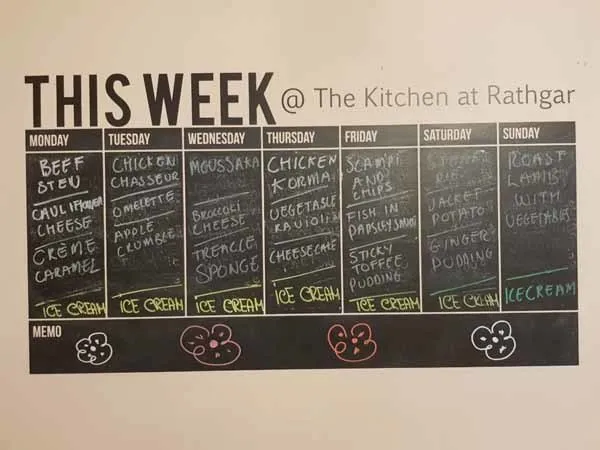 THIS WEEK @ The Kitchen at Rathgar
MONDAY
BEEF
STEW
CAULIFLOWER
CHEESE
CRÈME
CARAMEL
ICE CREAM
TUESDAY
CHICKEN
CHASSEUR
OMELETTE
APPLE
CRUMBLE
ICE CREAM
WEDNESDAY
MOUSSAKA
BROCCOLI
CHEESE
TREACLE
SPONGE
ICE CREAM
THURSDAY
CHICKEN
KORMA
VEGETABLE
RAVIOLI
CHEESECAKE
ICE CREAM
FRIDAY
SCAMPI
AND
CHIPS
FISH IN
PARSLEY SAUCE
STICKY
TOFFEE
PUDDING
ICE CREAM
SATURDAY
STEAK
PIE
JACKET
POTATO
GINGER
PUDDING
ICE CREAM
SUNDAY
ROAST
LAMB
WITH
VEGETABLES
ICECREAM
MEMO